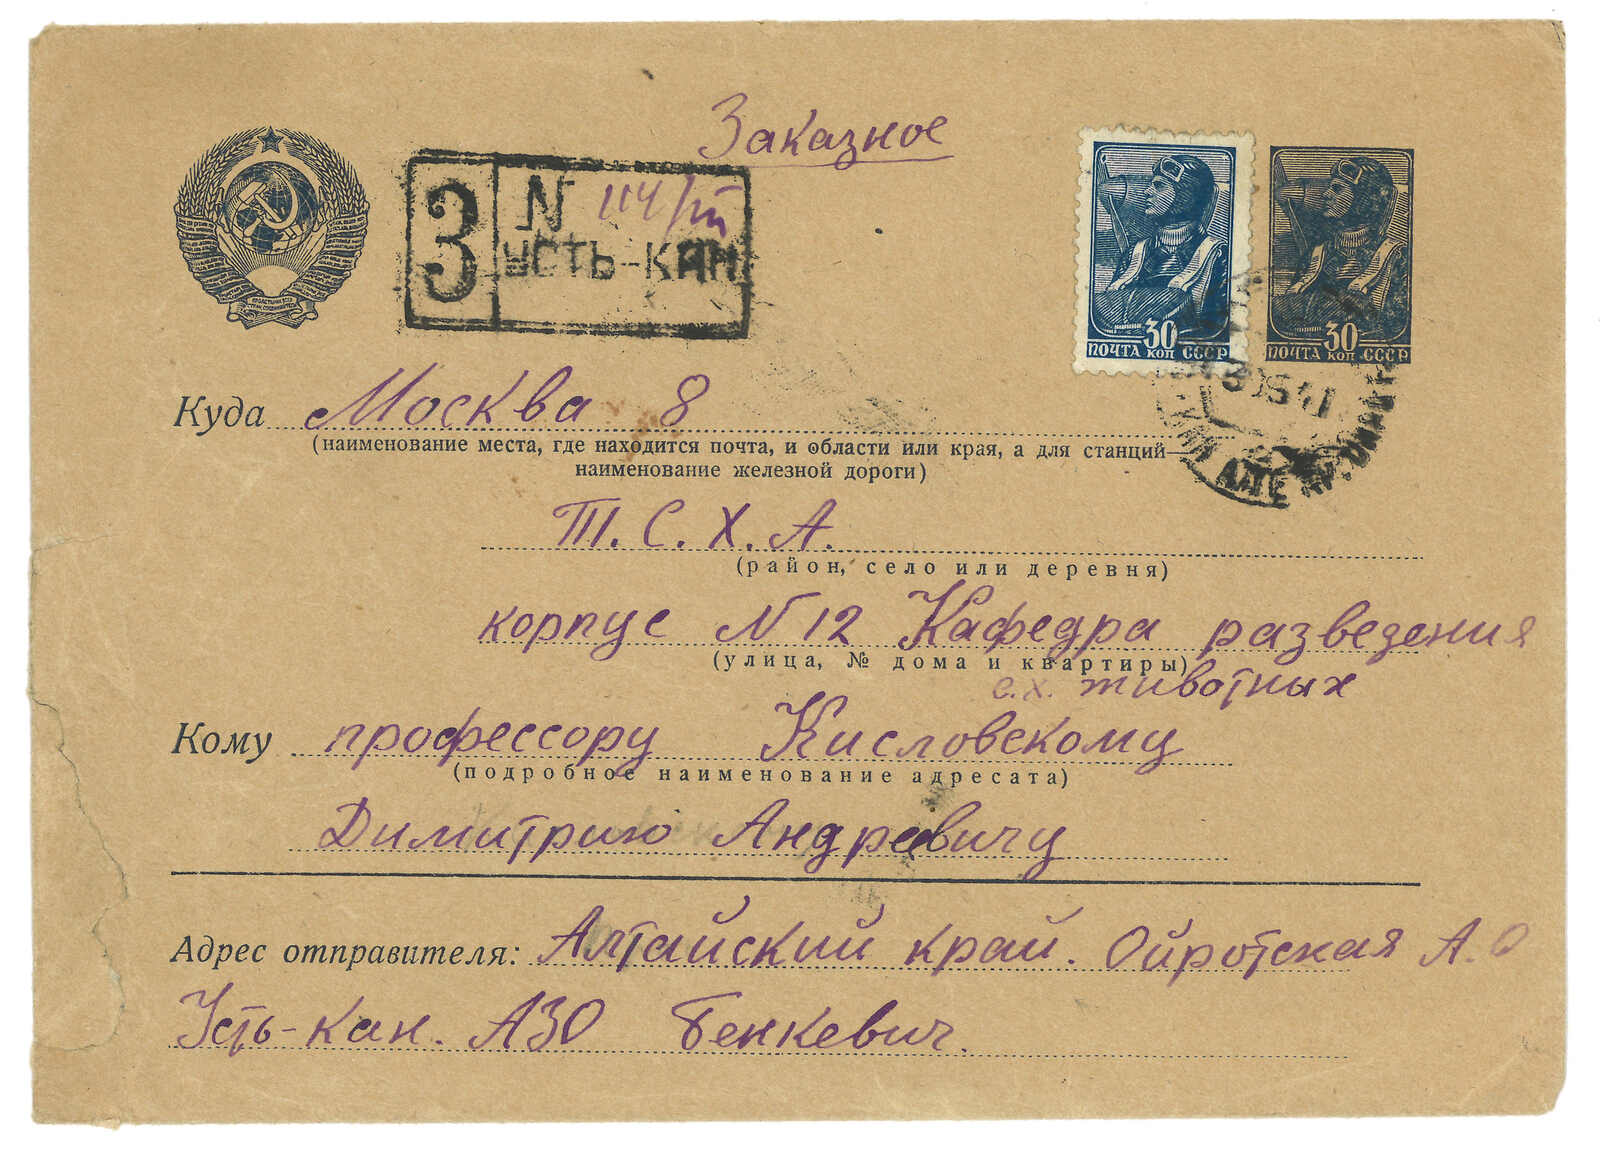 Заказное
З
N 114/пп
УСТЬ-КАН
30
ПОЧТА КОП СССР
30
ПОЧТА КОП СССР
Куда Москва 8
(наименование места, где находится почта, и области или края, а для станций—
наименование железной дороги)
Т.С.Х.А.
(район, село или деревня)
корпус N 12 Кафедра разведения
(улица, № дома и квартиры)
с.х. животных
Кому профессору Кисловскому
(подробное наименование адресата)
Димитрию Андревичу
Адрес отправителя: Алтайский край. Ойротская А.О
Усть-кан. АЗО Бенкевич.